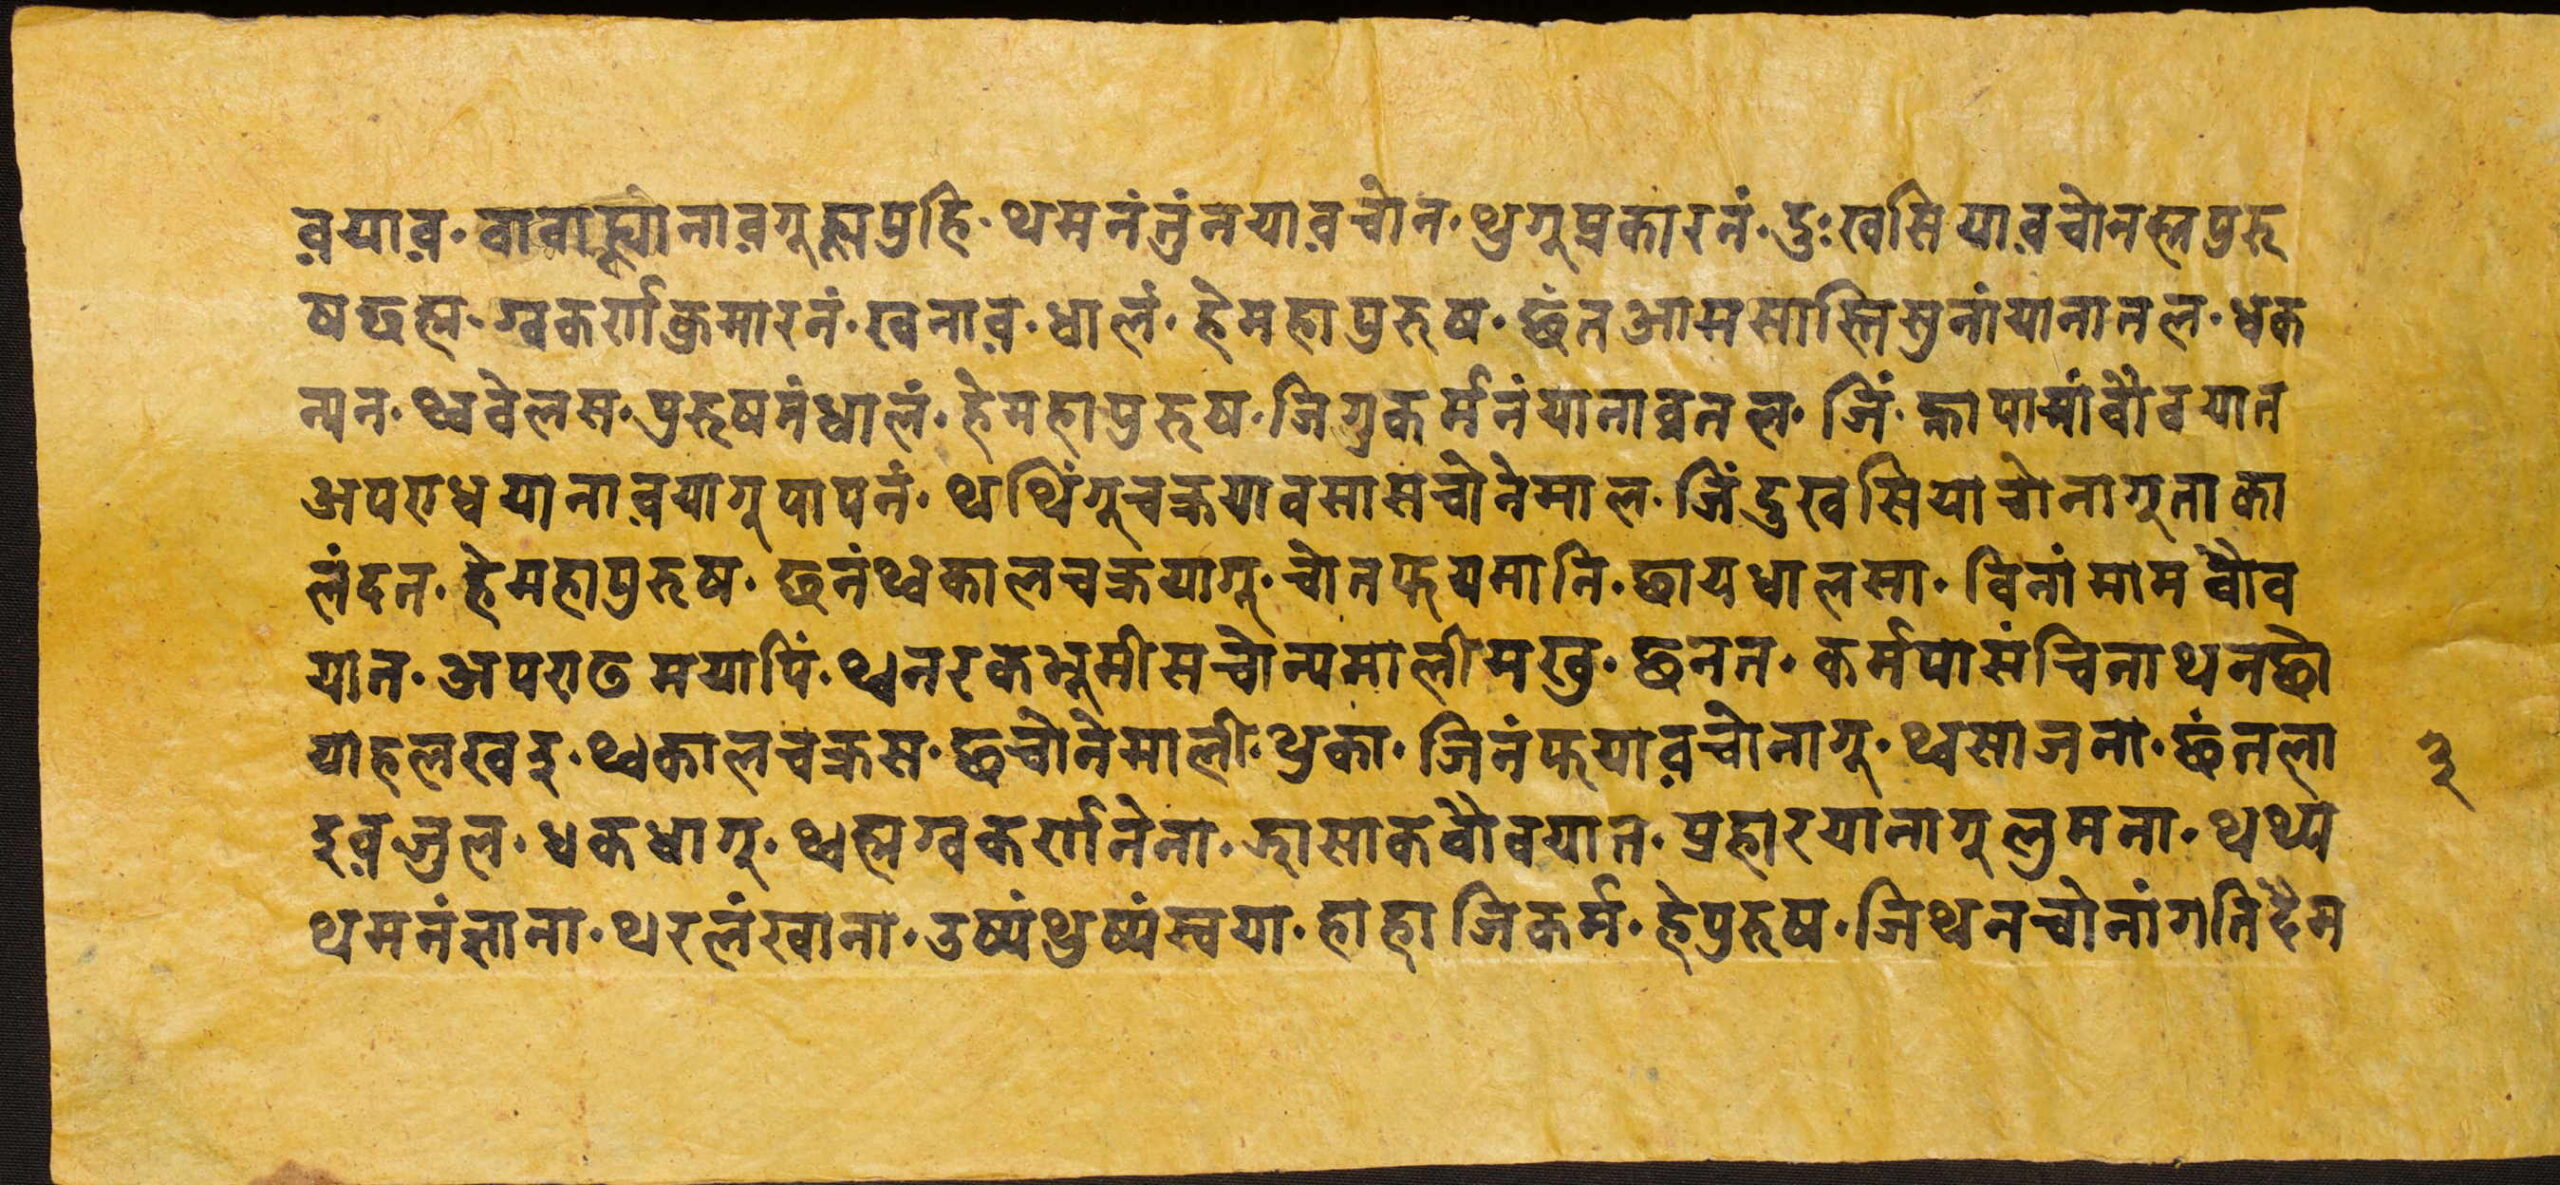 व़याव़· वावाह्यांनाव़गुह्मपुहि· थमनंनुंनयाव़चोन· थुगुप्रकारनं· दुःखसियाव़चोनह्मपुरू
षछह्म· ग्वकर्राकुमारनं· खनाव़· धालं· हेमहापुरुष· छंतआमसास्तिसुनांयानातल· धक
न्यन· थ्ववेलस· पुरूषनंधालं· हेमहापुरूष· जिगुकर्मनंयानाव़तल· जिं· ह्नापामांवौवयात
अपराधयानाव़यागुपापनं· थथिंगुचक्रयावसासचोनेमाल· जिंदुखसियाचोनागुताका
लंदत· हेमहापुरूष· छनंथ्वकालचक्रयागू· चोनफयमानि· छायधालसा· विनांमामवौव
यात· अपराढमयापिं· थ्वनरकभूमीसचोन्यमालीमखु· छनन· कर्मपासंचिनाथनछो
याहलखइ· थ्वकालचक्रस· छचोनेमाली· थुका· जिनंफयाव़चोनागू· थ्वसाजना· छंतला
इव़जुल· धकधागू· थ्वह्मग्वकर्रानेना· झासाकवौवयात· प्रहारयानागुलुमना· थथ्य
थमनंज्ञाना· थरलंखाना· उष्यंथुष्यंस्वया· हाहाजिकर्म· हेपुरूष· जिथनचोनांगतिदैम
३